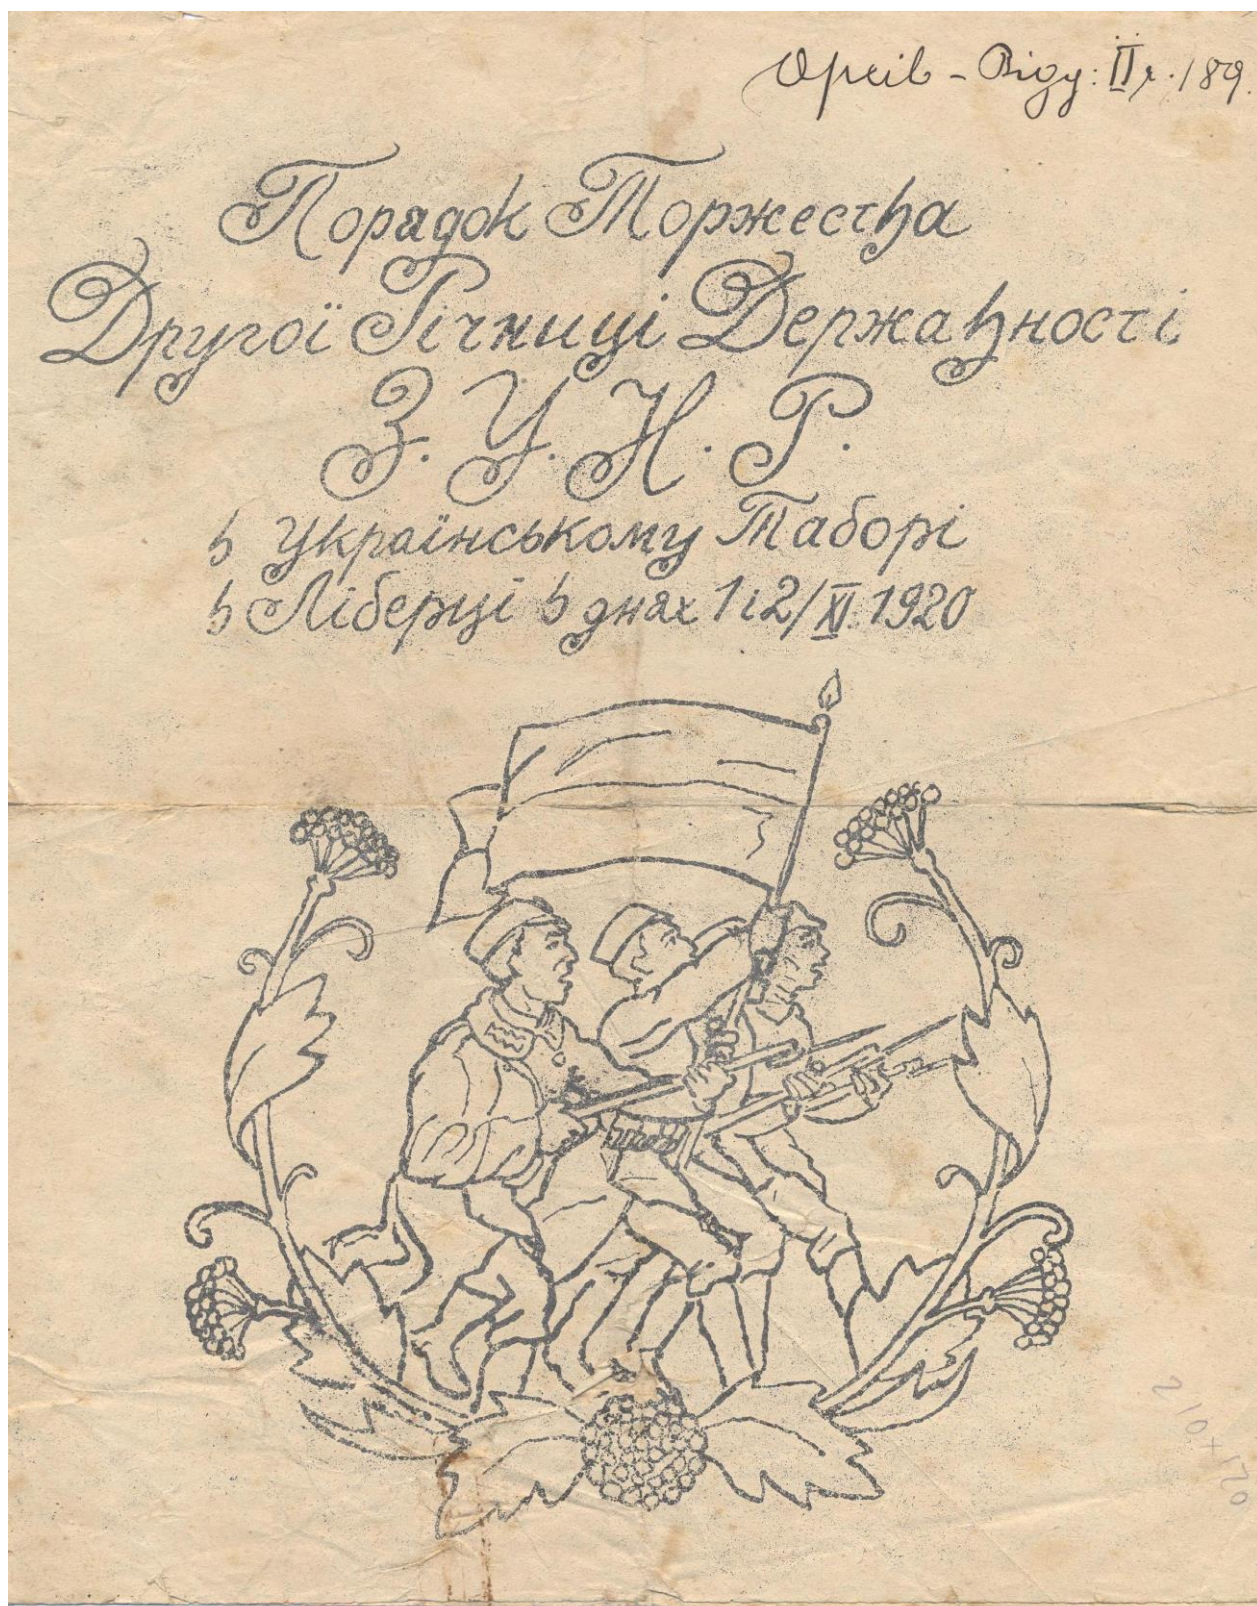 Архів - Відд: II ч. 189.
Порадок Торжества
Другої Річниці Державності
З. У. Н. Р.
в Українському Таборі
в Ліберці в днях 1 і 2/XI. 1920
210+170